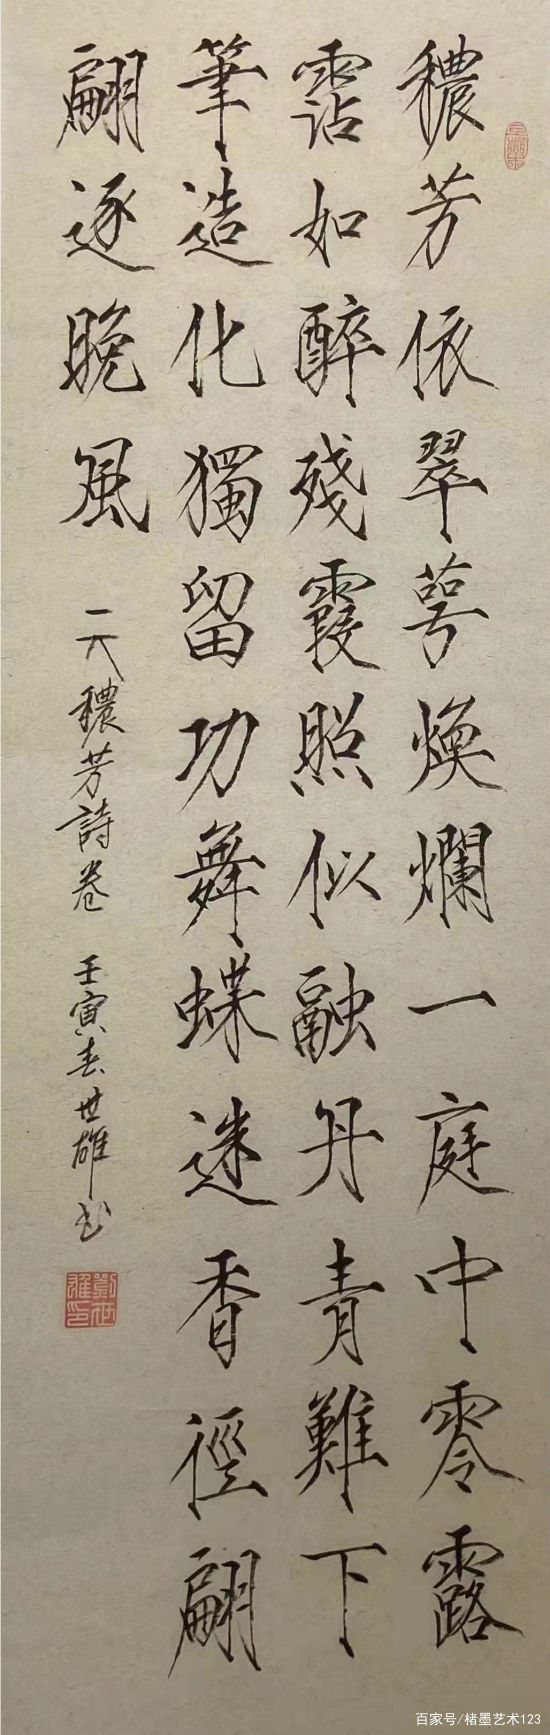 穠芳依翠萼煥爛一庭中零露
霑如醉殘霞照似融丹青難下
筆造化獨留功舞蝶迷香徑翩
翩逐晚風
穠芳詩卷 壬寅春世雄书
劉世雄印
百家号/楮墨艺术123